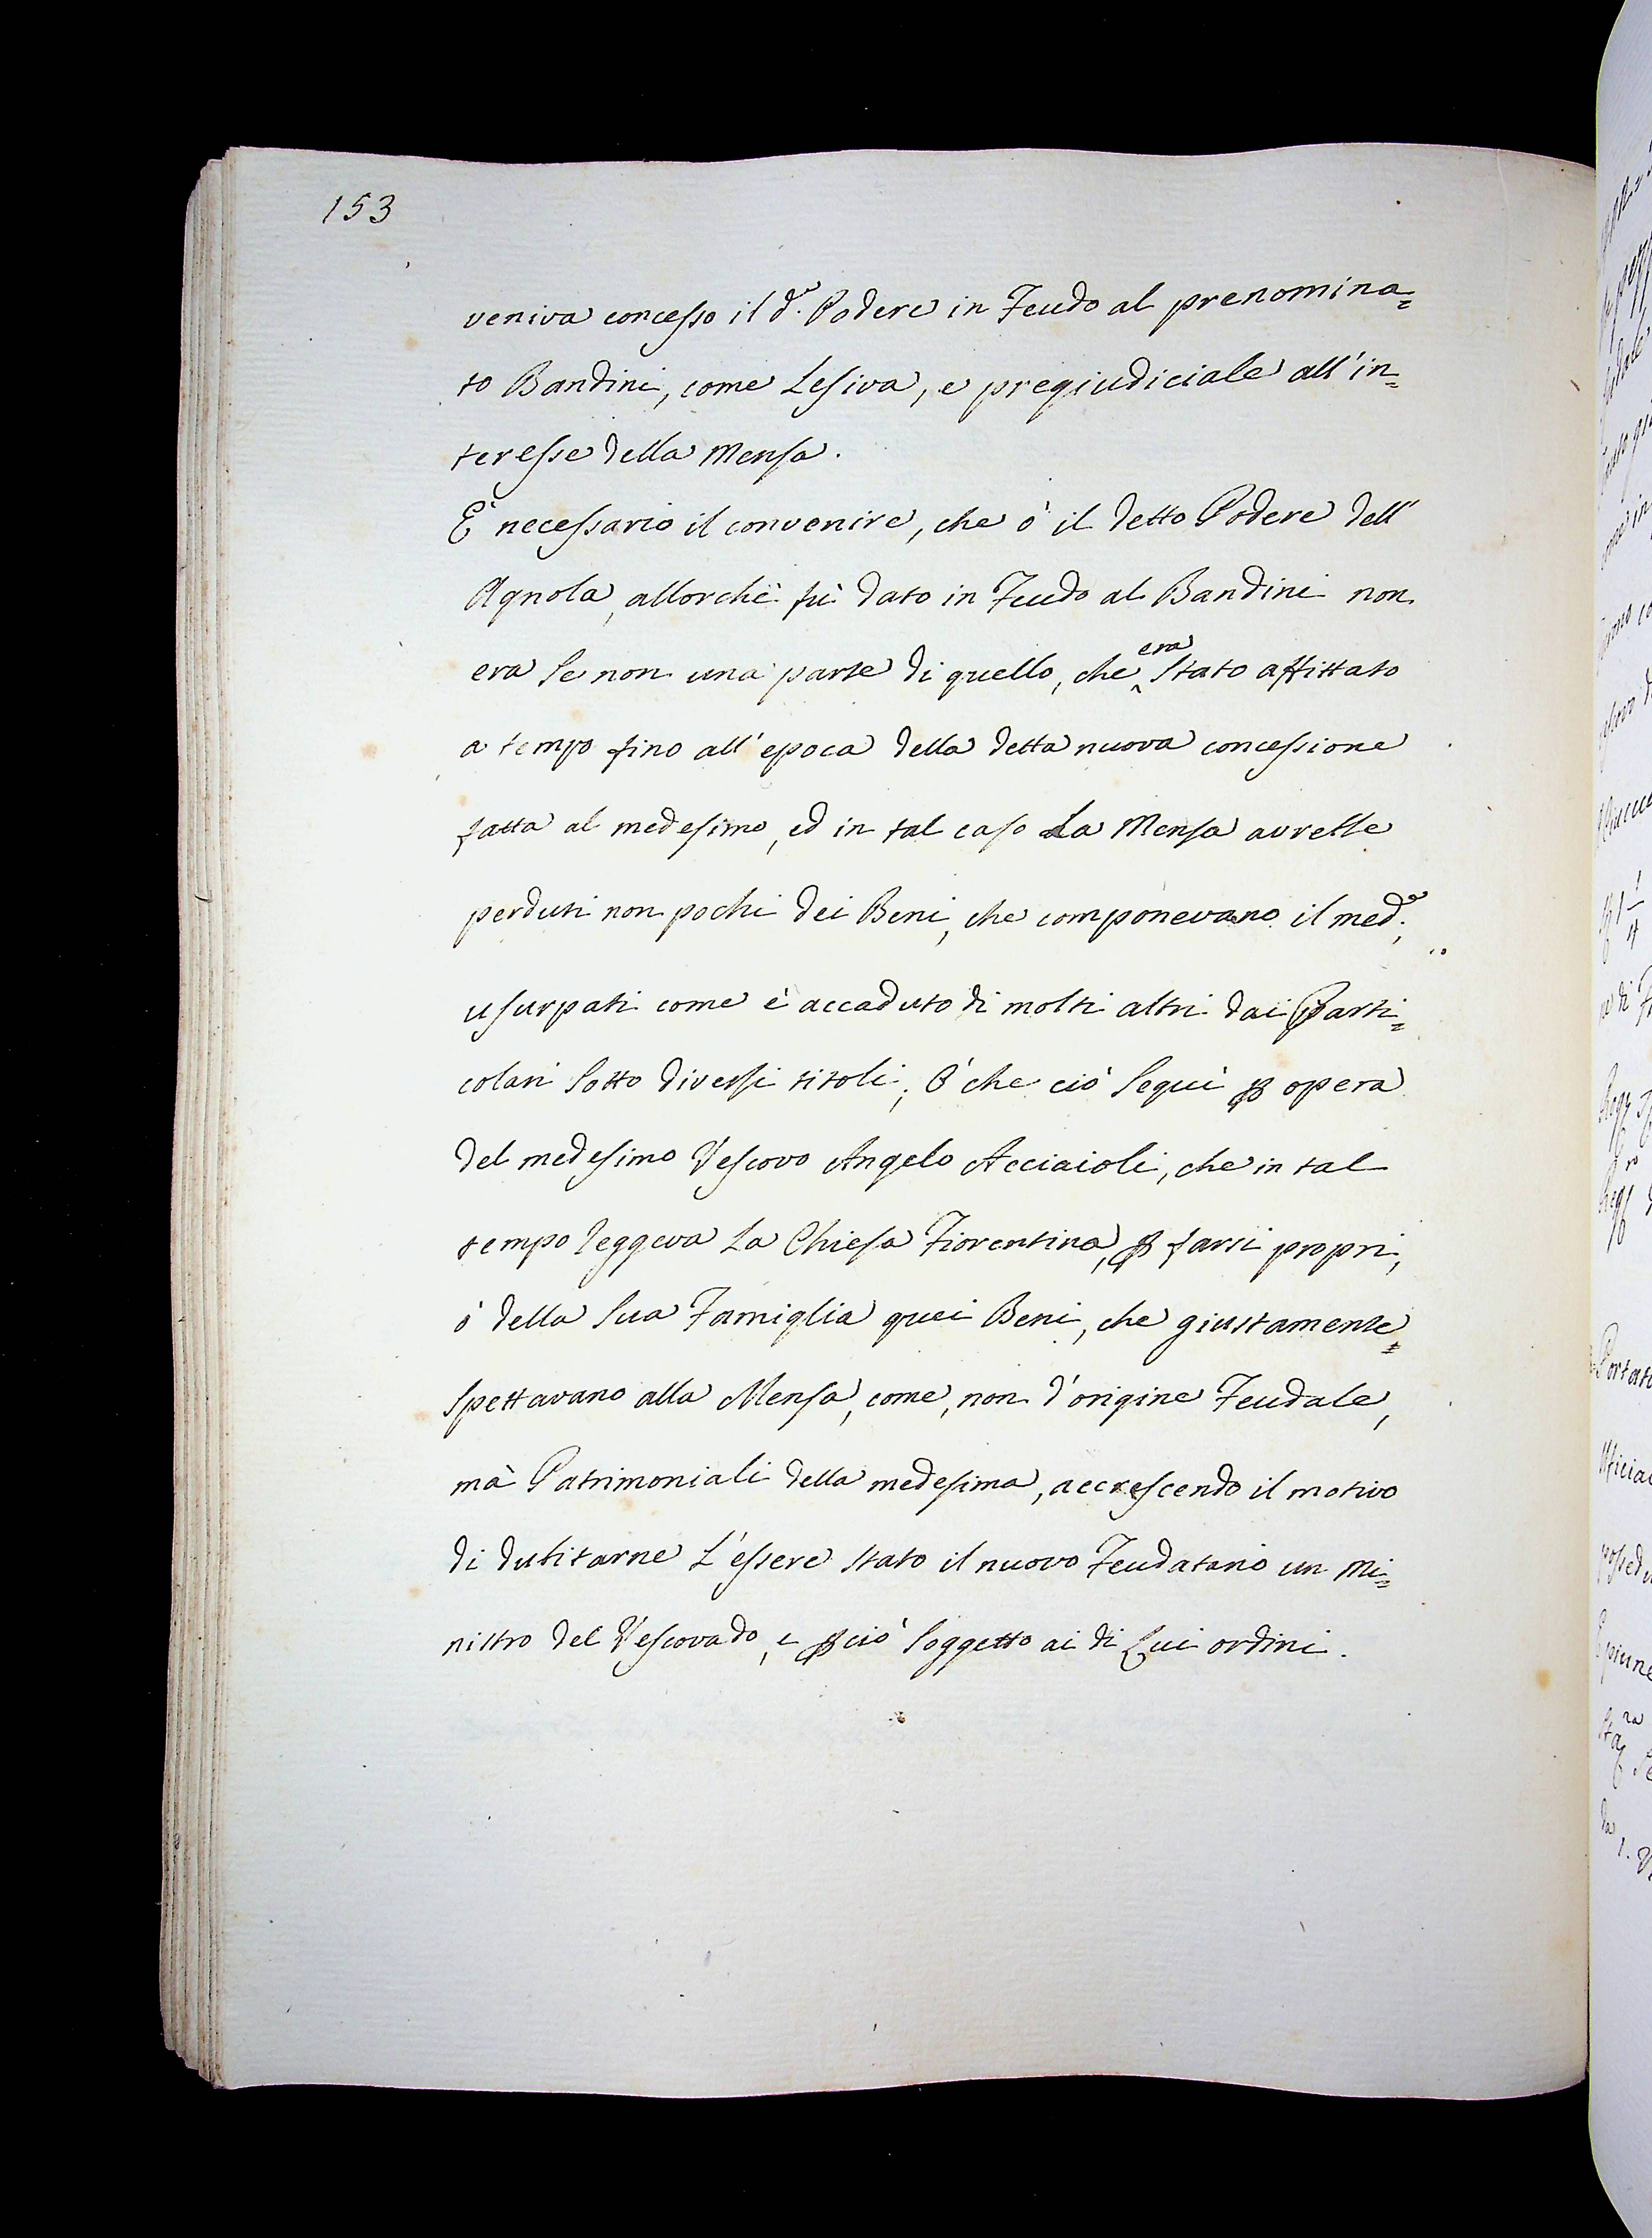 153
veniva concesso il d.º Podere in Feudo al prenomina=
to Bandini, come Lesiva, e pregiudiciale all'in=
teresse della Mensa.
E' necessario il convenire, che ò il detto Podere dell'
Agnola, allorchè fù dato in Feudo al Bandini non
era se non una parte di quello, che era stato affittato
a tempo fino all'epoca della detta nuova concessione
fatta al medesimo, ed in tal caso La Mensa avrebbe
perduti non pochi dei Beni, che componevano il med.º,
usurpati come è accaduto di molti altri dai Parti=
colari sotto diversi titoli; ò che ciò seguì ꝑ opera
del medesimo Vescovo Angelo Acciaioli, che in tal
tempo reggeva La Chiesa Fiorentina, ꝑ farsi propri,
ò della sua Famiglia quei Beni, che giustamente=
spettavano alla Mensa, come, non d'origine Feudale,
mà Patrimoniali della medesima, accrescendo il motivo
di dubitarne L'essere stato il nuovo Feudatario un Mi=
nistro del Vescovado, e ꝑciò soggetto ai di Lui ordini.